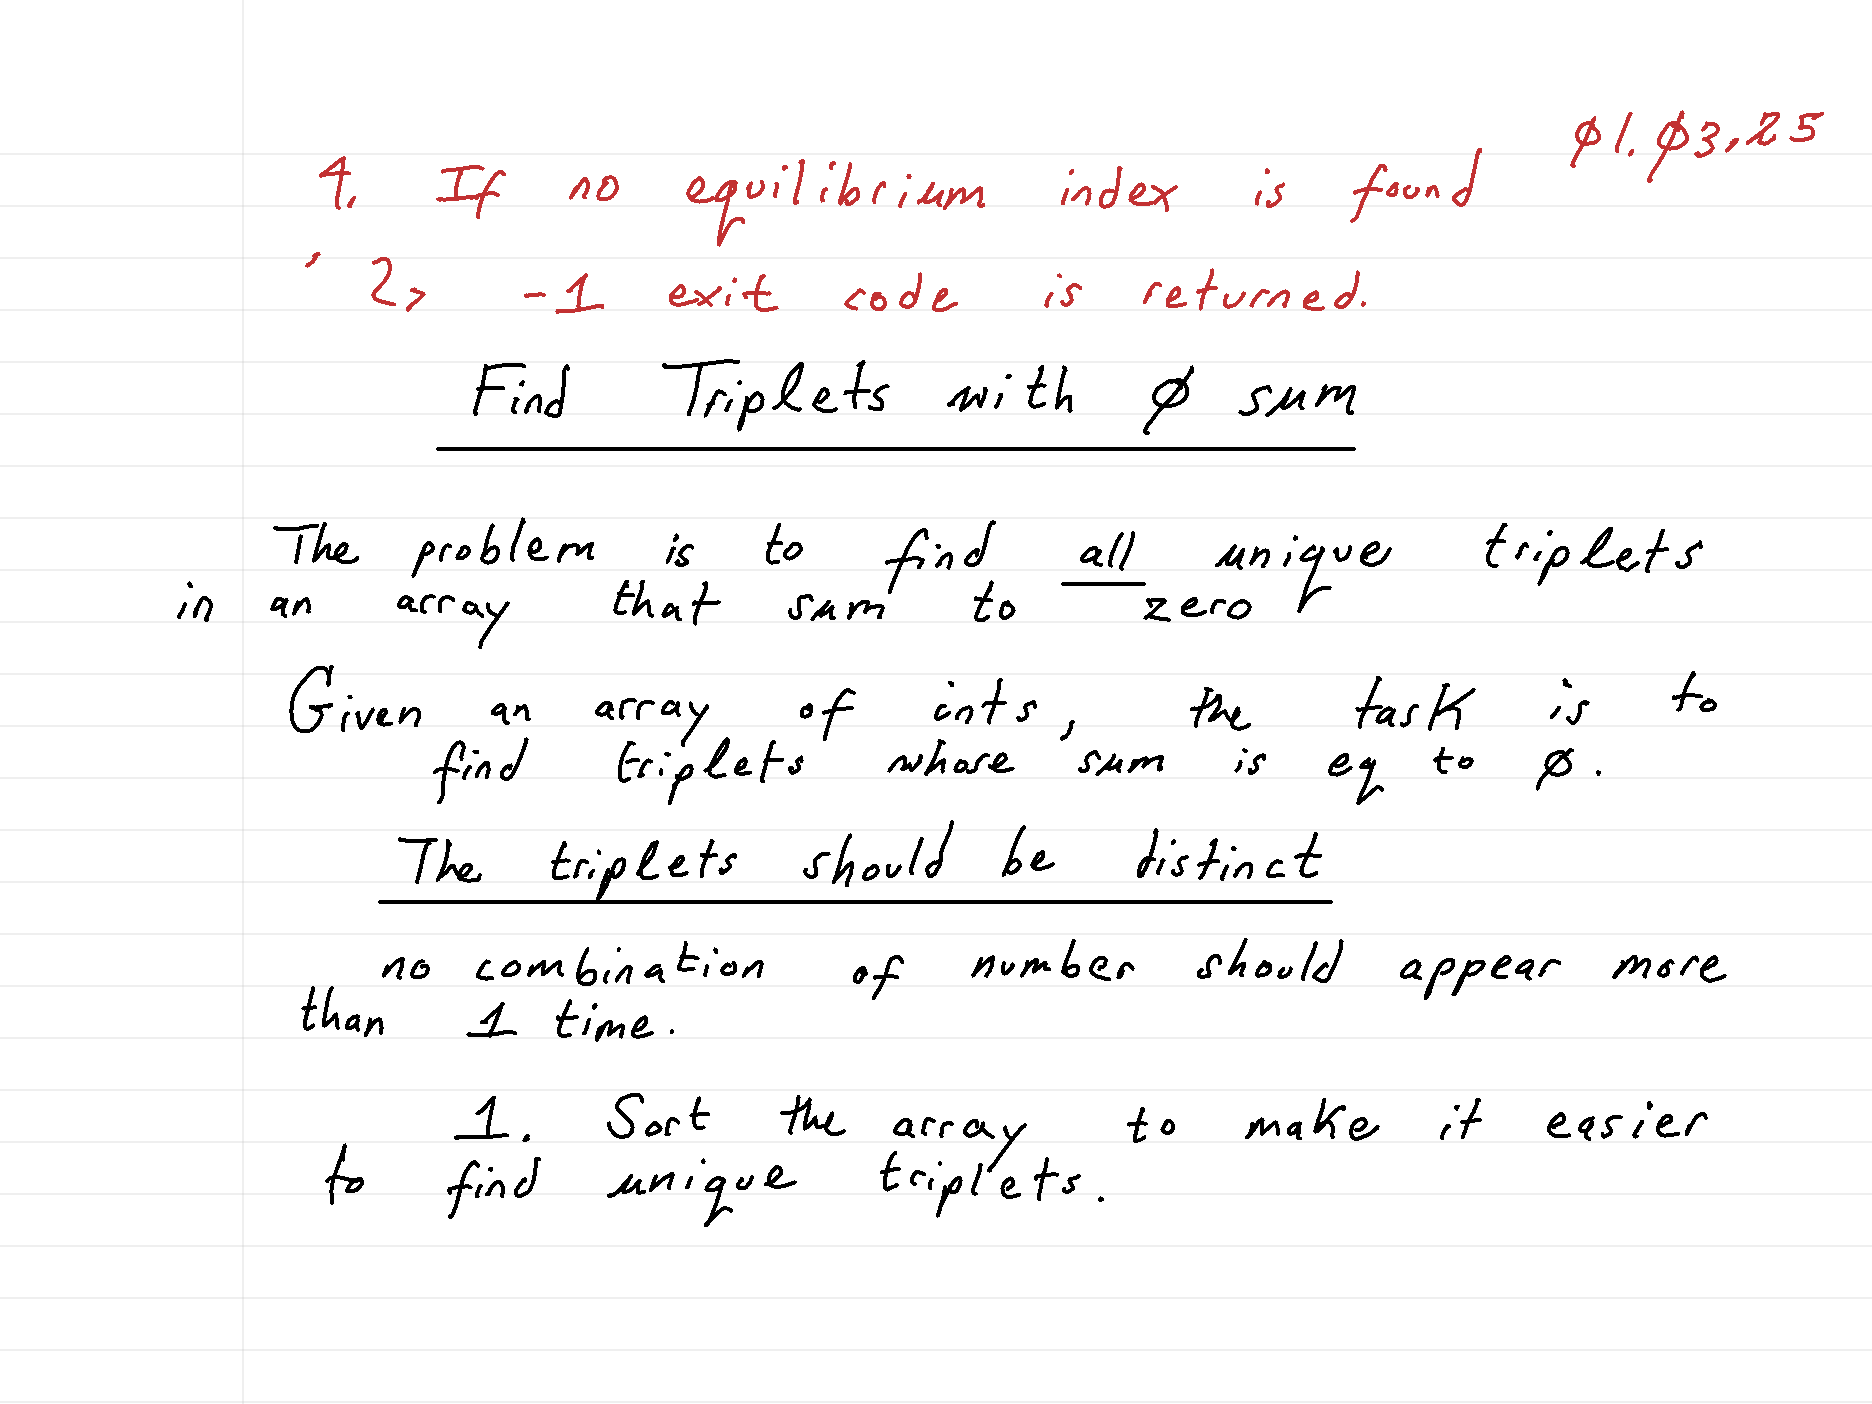 Ø1.Ø3.25
4. If no equilibrium index is found
2, -1 exit code is returned.
Find Triplets with Ø sum
The problem is to find all unique triplets
in an array that sum to zero
Given an array of ints, the task is to
find triplets whose sum is eq to Ø.
The triplets should be distinct
no combination of number should appear more
than 1 time.
1. Sort the array to make it easier
to find unique triplets.